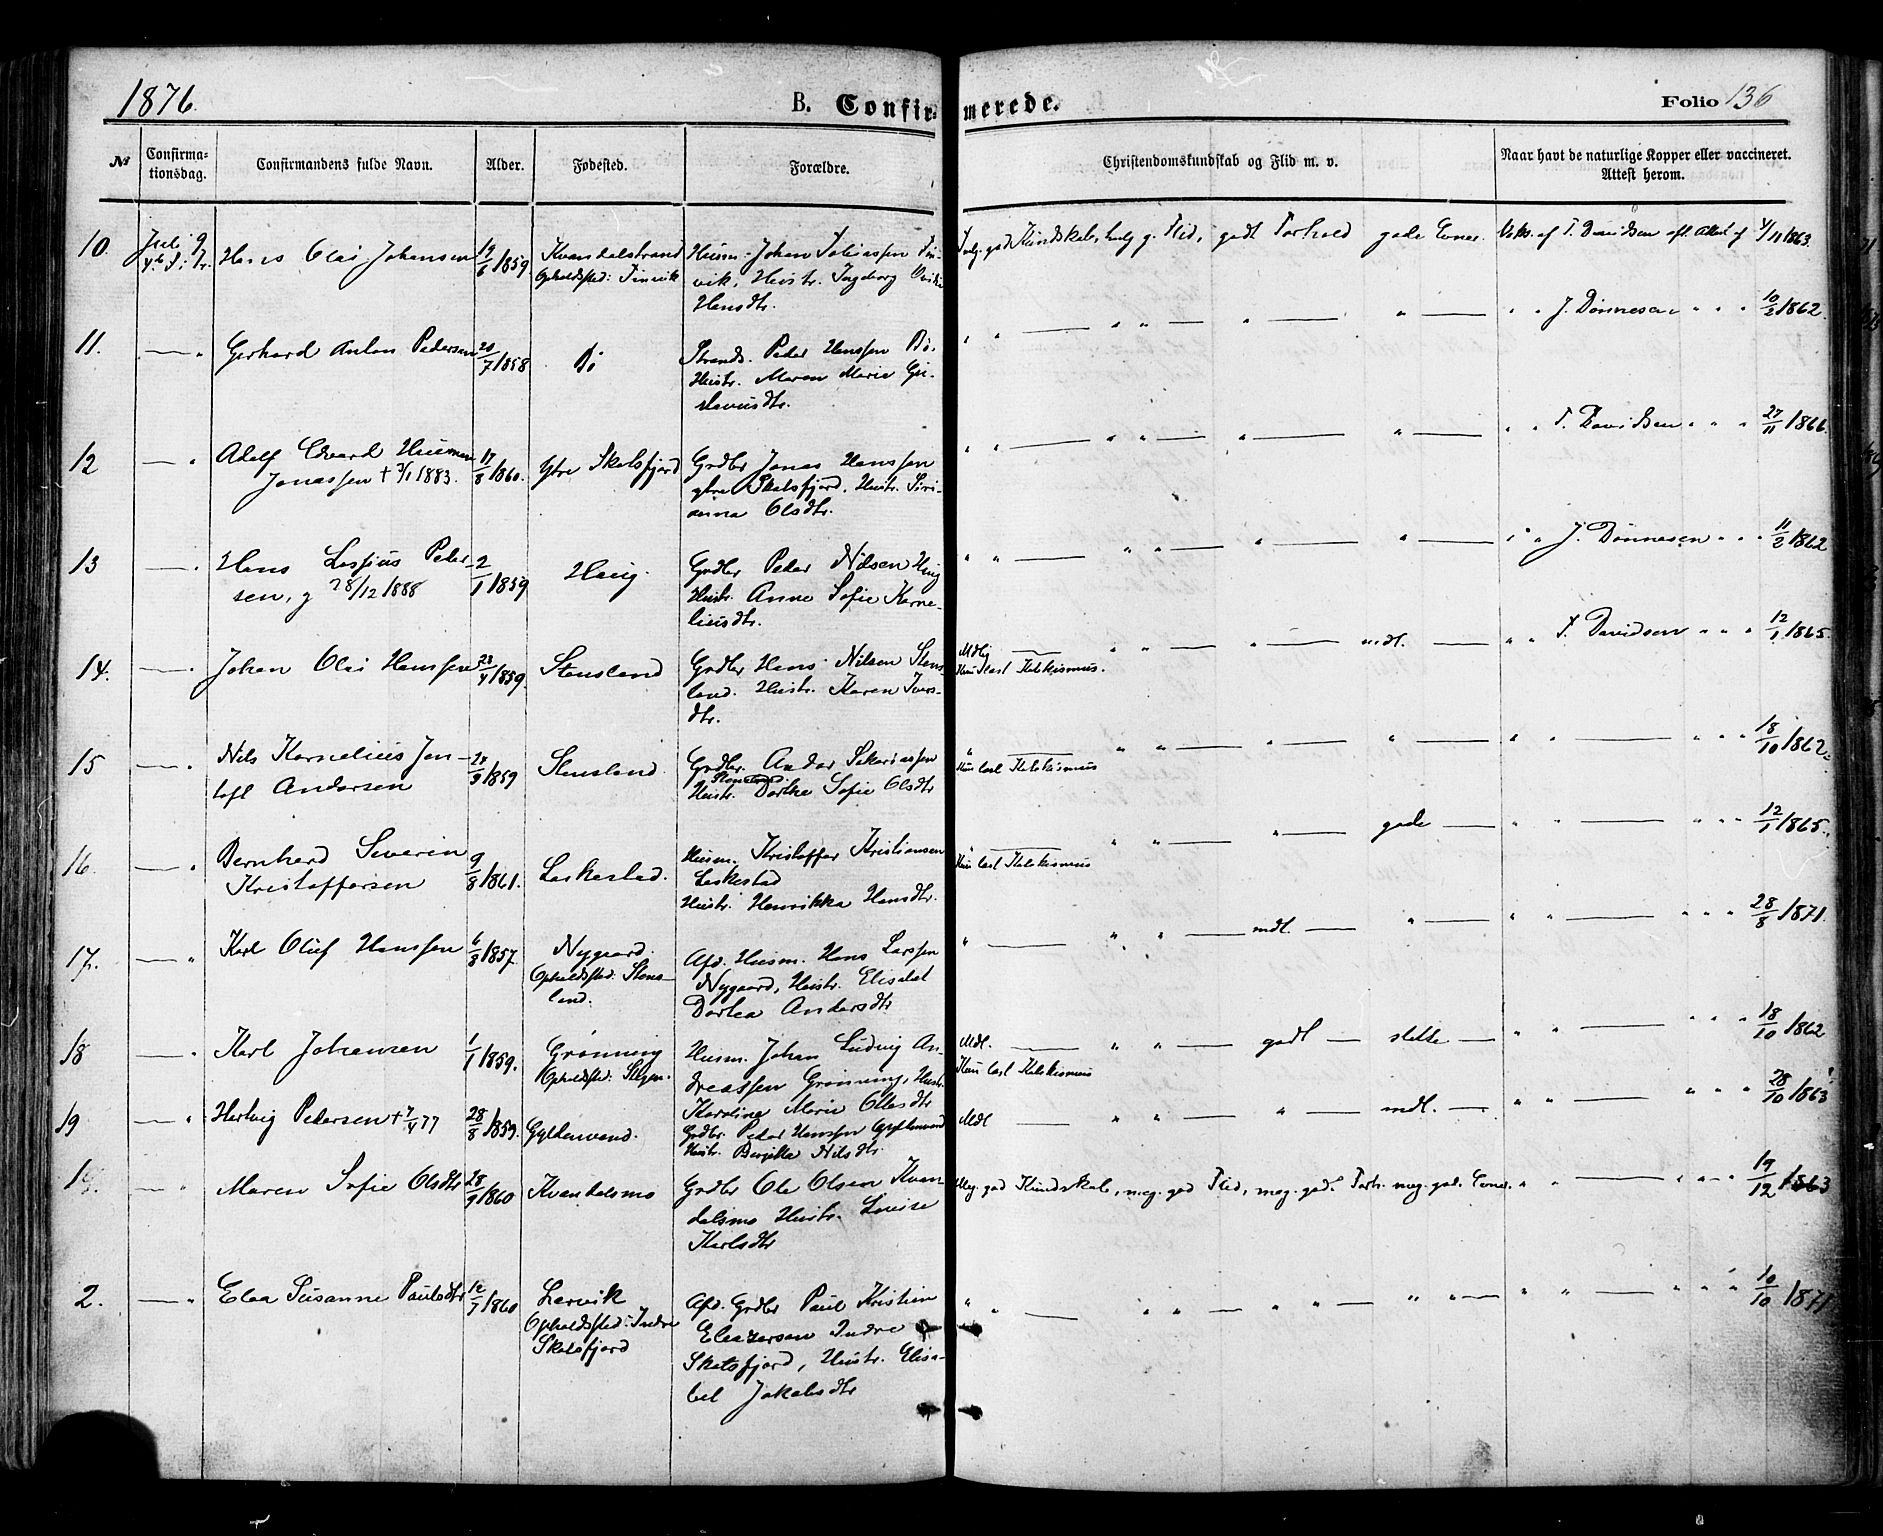 1876.
B. Confirmerede.
Folio 136
№
Confirmationsdag.
Confirmandens fulde Navn.
Alder.
Fødested.
Forældre.
Christendomskundskab og Flid m. v.
Naar havt de naturlige Kopper eller vaccineret. Attest herom.
10. Juli 9 Hans Olai Johansen 19/6 1859 Kvandalstrand Husm. Johan Tobiassen Finvik, Hustr. Ingeborg
Opholdssted: Finvik Hansdtr.
Kundskab, g. Flid, godt Forhold gode Evner. Vaks. af T. Davidsen aft. Attest af 4/11 1863.
11. — " Gerhard Anton Pedersen 20/7 1858 Bø Strands. Peder Hanssen Bø.
Hustr. Maren Marie
" " — " " — " — " — " " J. Dønnesen " " " 10/2 1862.
12 — " Adolf Edvard
Jonassen † 3/1 1883. 17/8 1860. Ytre Skotsfjord Grdbr Jonas Hanssen
ytre Skotsfjord. Hustr. Sirianna Olsdtr.
" " — " " — " — " — " " T. Davidsen " " " 27/11 1866.
13 — " Hans Pedersen, g 28/12 1888 2/1 1859 Haug. Grdbr Peder Nilsen Haug
Hustr. Anne Sofie Korneliusdtr.
" " — " " — " — " — " " J. Dønnesen " " " 11/2 1862
14. — " Johan Olai Hanssen 23/4 1859. Stensland Grdbr Hans Nilsen Stensland. Hustr. Karen Iversdtr.
Mdlig — " " — " — mdl. — " " T. Davidsen " " " 12/1 1865.
Kun læst Katekismus.
15 — " Nils Kornelius Jentoft Andersen 1859 Stensland. Grdbr. Andor Sakariassen
Stensland.
Hustr. Dorthe Sofie Olsdtr
" — " " — " — " — " " — " " " 18/10 1862.
Kun læst Katekismus
16. — " Bernhard Severin
Kristoffersen 9/8 1861. Leskestad. Husm. Kristoffer Kristiansen
Leskestad
Hustr. Henrikka Hansdtr.
" — " " — " — gode — " " — " " " 12/1 1865.
Kun læst Katekismus
17. — " Karl Oluf Hanssen 6/8 1857. Nygaard.
Opholdsted: Stensland.
Afd. Husm. Hans Larssen
Nygaard, Hustr. Elisabet
Dortea Andersdtr
" — " " — mdl. — " — " " — " " " 28/8 1871.
18 — " Karl Johansen 1/1 1859. Grønning
Opholdsted:
Husm. Johan Ludvig Andreassen Grønning, Hustr.
Karoline Marie
Mdl. — " " — godt — slette — " " — " " " 18/10 1862
Kun læst Katekismus
19 — " Hartvig Pedersen † 7/4 77 28/8 1859. Gyltenvand. Grdbr. Peder Hanssen Gyltenvand
Hustr. Birgitte Nilsdtr.
Mdl — " " — " — mdl. — " " — " " " 28/10 1863
1. — " Maren Sofie Olsdtr 28/9 1860 Kvandalsmo Grdbr Ole Olsen Kvandalsmo Hustr. Lovise
Karlsdtr
Meg. god Kundskab, meg. god Flid, meg. god. Forh. meg. gode. Evner. " " — " " " 19/12 1863
2. — " Elea Susanne Paulsdtr 12/7 1860 Lervik
Opholdsted: Indre
Skotsfjord
Afd. Grdbr Paul Kristian
Eleazersen Indre
Skotsfjord, Hustr. Elisabet Jakobsdtr
" " — " " — " " — " " — " " — " " " 10/10 1871